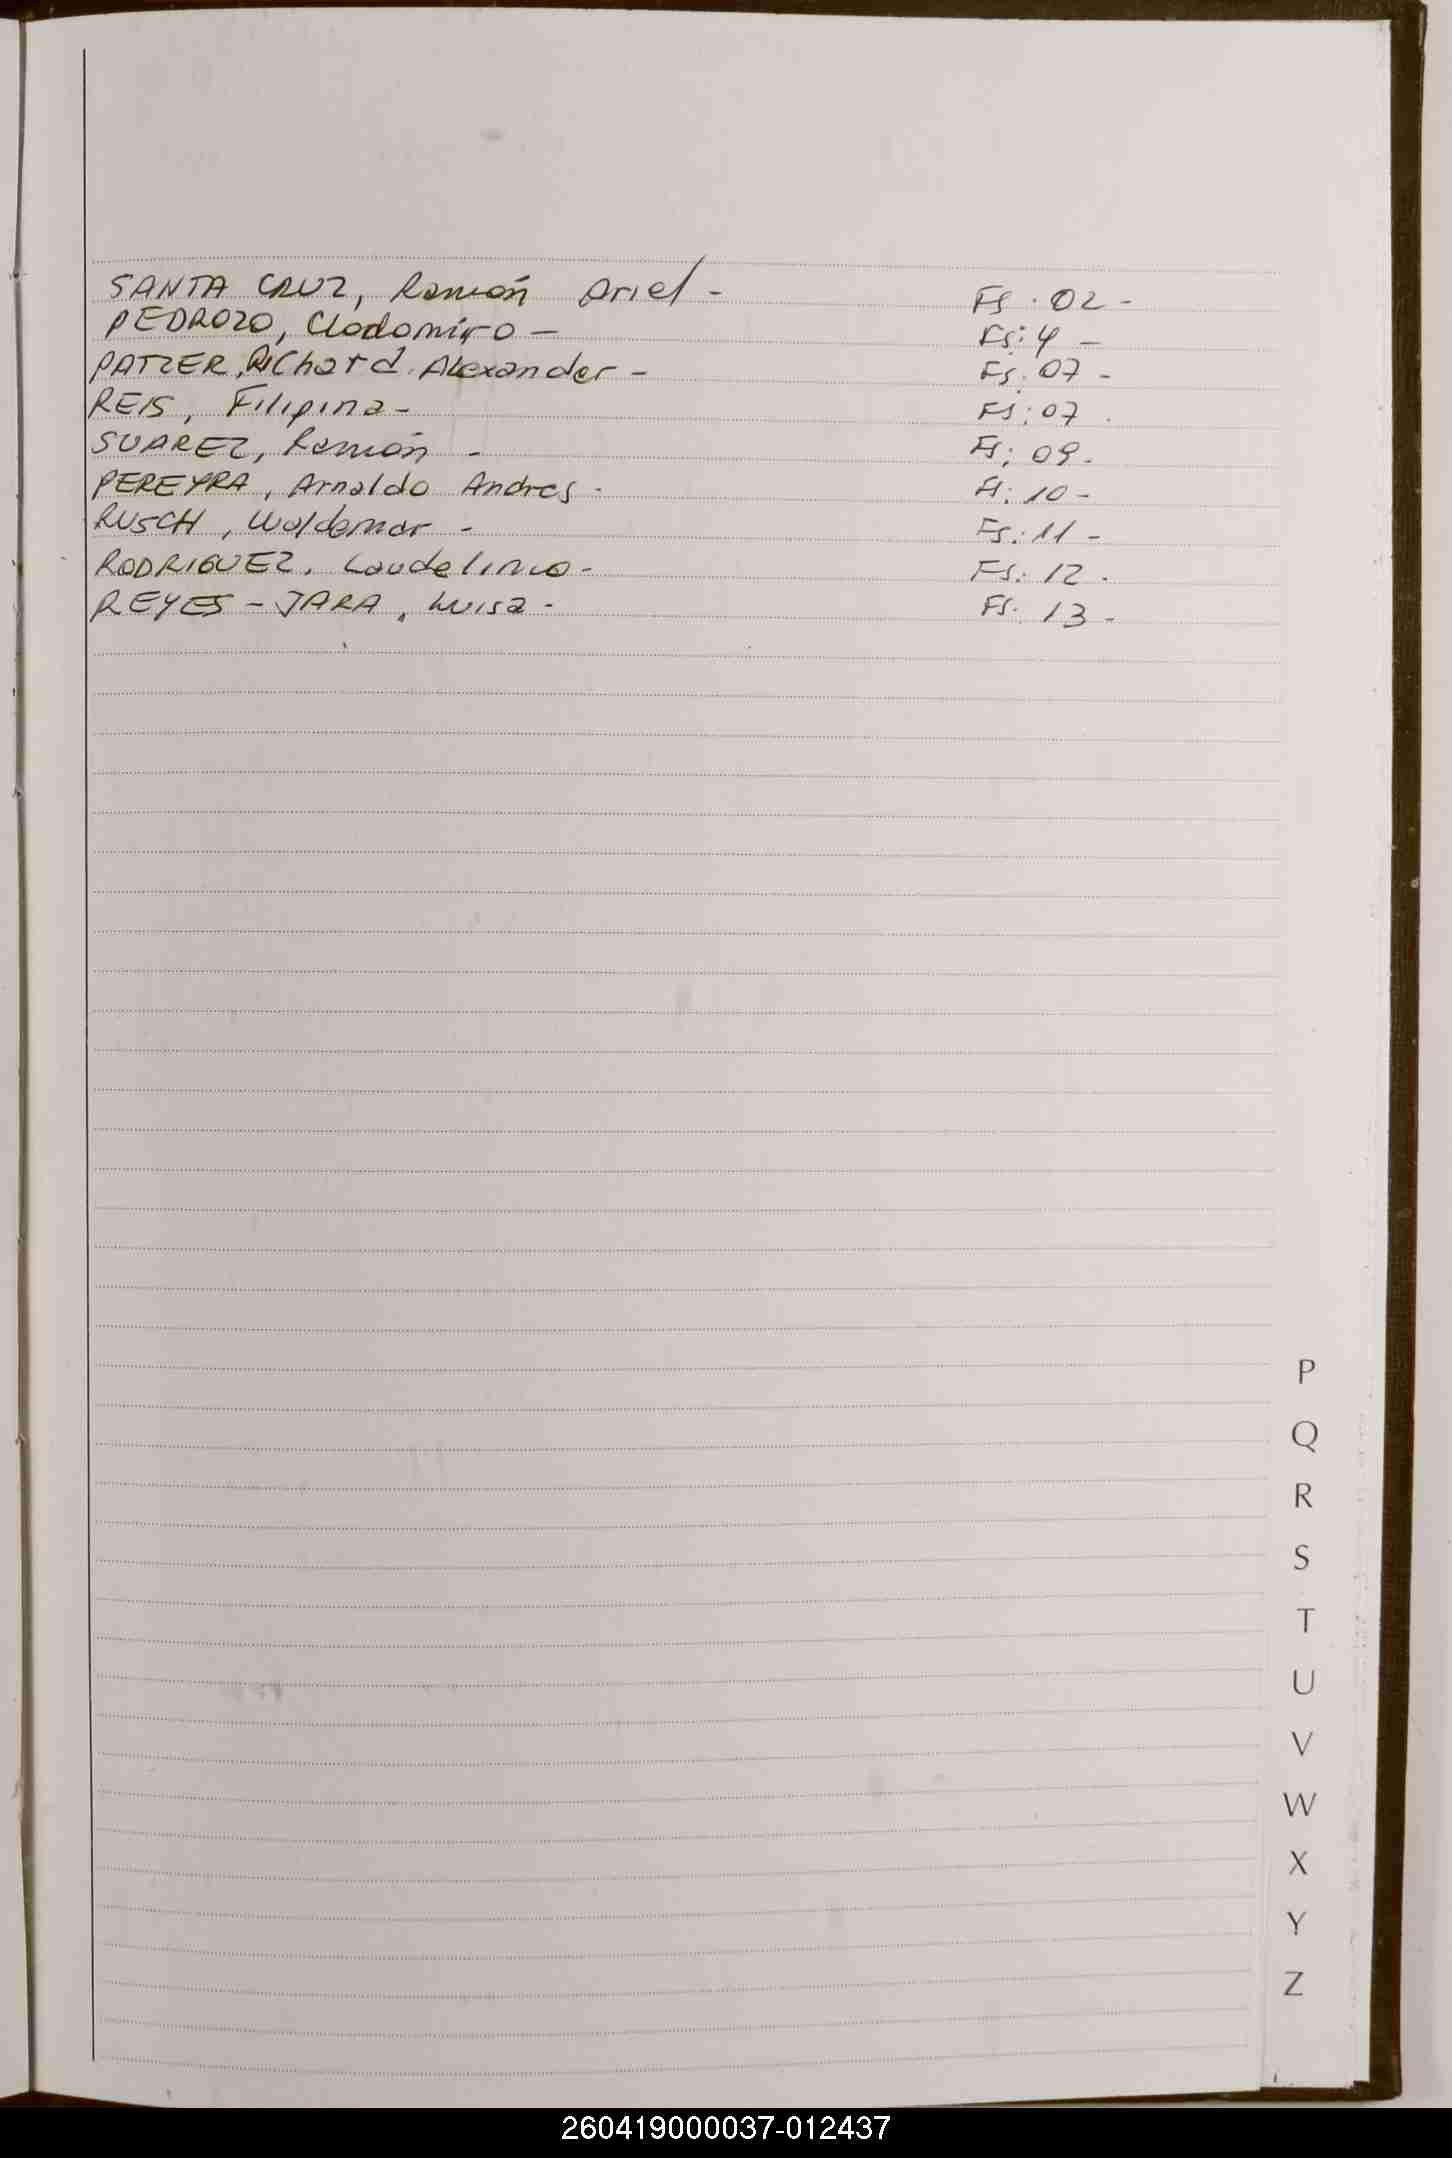 SANTA CRUZ, Ramón Ariel - Fs. 02 -
PEDROZO, Clodomiro - Fs: 4 -
PATZER, Richard Alexander - Fs: 07 -
REIS, Filipina - Fs: 07.
SUAREZ, Ramón - Fs: 09.
PEREYRA, Arnaldo Andres - Fs: 10 -
RUSCH, Waldemar - Fs: 11 -
RODRIGUEZ, Laudelino - Fs: 12.
REYES - JARA, Luisa - Fs. 13 -
P
Q
R
S
T
U
V
W
X
Y
Z
260419000037-012437